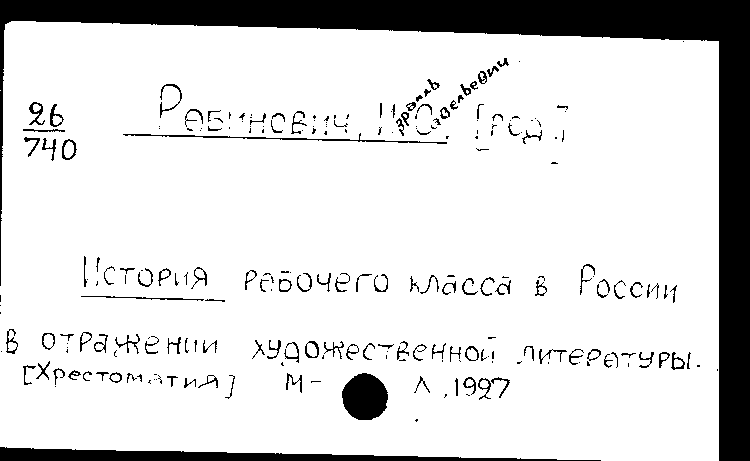 26
740
Рабинович, И.С. [ред.]
зраиль авельевич
История рабочего класса в России
в отражении художественной литературы.
[Хрестоматия] М-Л, 1927